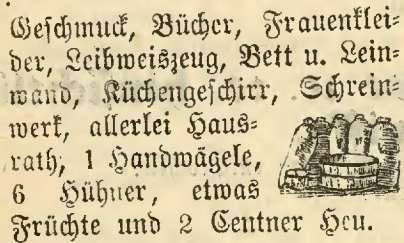 Geschmuck, Bücher, Frauenklei-
der, Leibweiszeug, Bett u. Lein-
wand, Küchengeschirr, Schrein-
werk, allerlei Haus-
rath, 1 Handwägele,
6 Hühner, etwas
Früchte und 2 Centner Heu.